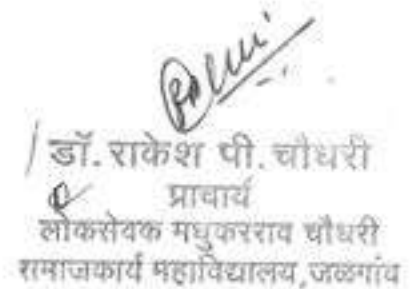 डॉ. राकेश पी. चौधरी
प्राचार्य
लोकसेवक मधुकरराव चौधरी
समाजकार्य महाविद्यालय, जळगांव